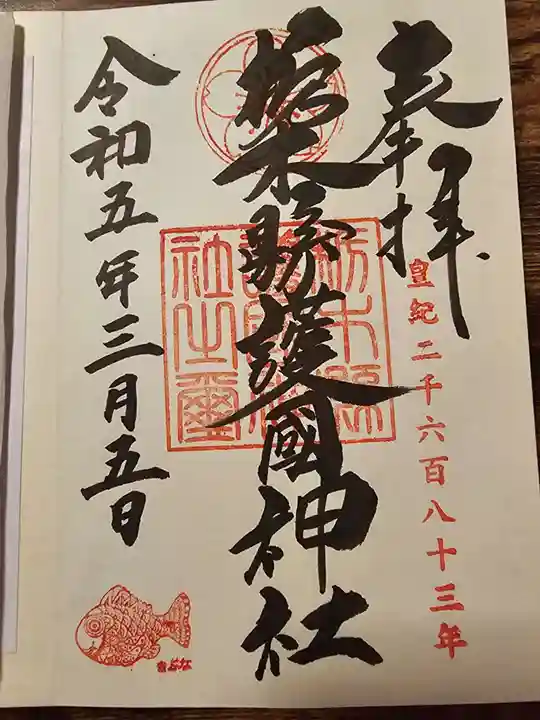 奉拝
皇紀二千六百八十三年
栃木縣護國神社
栃木縣
護國神
社之璽
令和五年三月五日